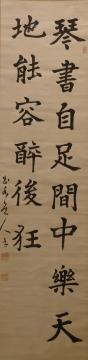 琴書自足間中樂天
地能容醉後狂